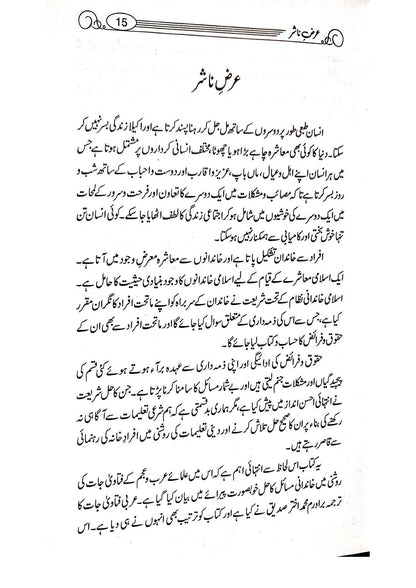 عرضِ ناشر
15
عرضِ ناشر
انسان طبعی طور پر دوسروں کے ساتھ مل جل کر رہنا پسند کرتا ہے اور اکیلا زندگی بسر نہیں کر
سکتا۔ دنیا کا کوئی بھی معاشرہ چاہے بڑا ہو یا چھوٹا مختلف انسانی کرداروں پر مشتمل ہوتا ہے، جس
میں ہر انسان اپنے اہل و عیال، ماں باپ، عزیز و اقارب اور دوست و احباب کے ساتھ شب و
روز بسر کرتا ہے تا کہ مصائب و مشکلات میں ایک دوسرے کا تعاون اور فرحت و سرور کے لمحات
میں ایک دوسرے کی خوشیوں میں شامل ہو کر اجتماعی زندگی کا لطف اٹھایا جا سکے۔ کوئی انسان تن
تنہا خوش بختی اور کامیابی سے ہمکنار نہیں ہو سکتا۔
افراد سے خاندان تشکیل پاتا ہے اور خاندانوں سے معاشرہ معرضِ وجود میں آتا ہے۔
ایک اسلامی معاشرے کے قیام کے لیے اسلامی خاندانوں کا وجود بنیادی حیثیت کا حامل ہے۔
اسلامی خاندانی نظام کے تحت شریعت نے خاندان کے سربراہ کو اپنے ماتحت افراد کا نگران مقرر
کیا ہے، جس سے اس کی ذمہ داری کے متعلق سوال کیا جائے گا اور ماتحت افراد سے بھی ان کے
حقوق و فرائض کا حساب و کتاب لیا جائے گا۔
حقوق و فرائض کی ادائیگی اور اپنی ذمہ داری سے عہدہ برآء ہوتے ہوئے کئی قسم کی
پیچیدگیاں اور مشکلات جنم لیتی ہیں اور بے شمار مسائل کا سامنا کرنا پڑتا ہے۔ جن کا حل شریعت
نے انتہائی احسن انداز میں پیش کیا ہے، مگر ہماری بدقسمتی ہے کہ ہم شرعی تعلیمات سے آگاہی نہ
رکھنے کی بناء پر ان کا صحیح حل تلاش کرنے اور دینی تعلیمات کی روشنی میں افرادِ خانہ کی رہنمائی
سے قاصر رہتے ہیں۔
یہ کتاب اس لحاظ سے انتہائی اہم ہے کہ اس میں علمائے عرب و عجم کے فتاویٰ جات کی
روشنی میں خاندانی مسائل کا حل خوبصورت پیرائے میں بیان کیا گیا ہے۔ عربی فتاویٰ جات کا
ترجمہ برادرم محمد اختر صدیق نے کیا ہے اور کتاب کو ترتیب بھی انہوں نے ہی دیا ہے۔ اس